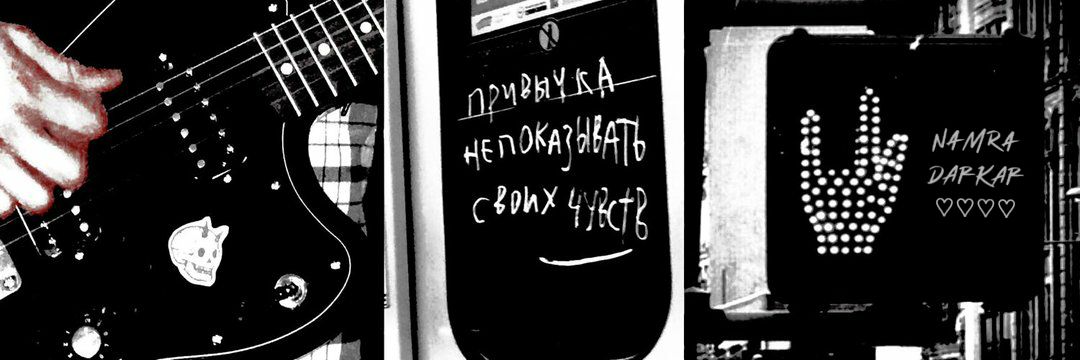 ПРИВЫЧКА
НЕПОКАЗЫВАТЬ
СВОИХ ЧУВСТВ
NAMRA
DARKAR
♡♡♡♡